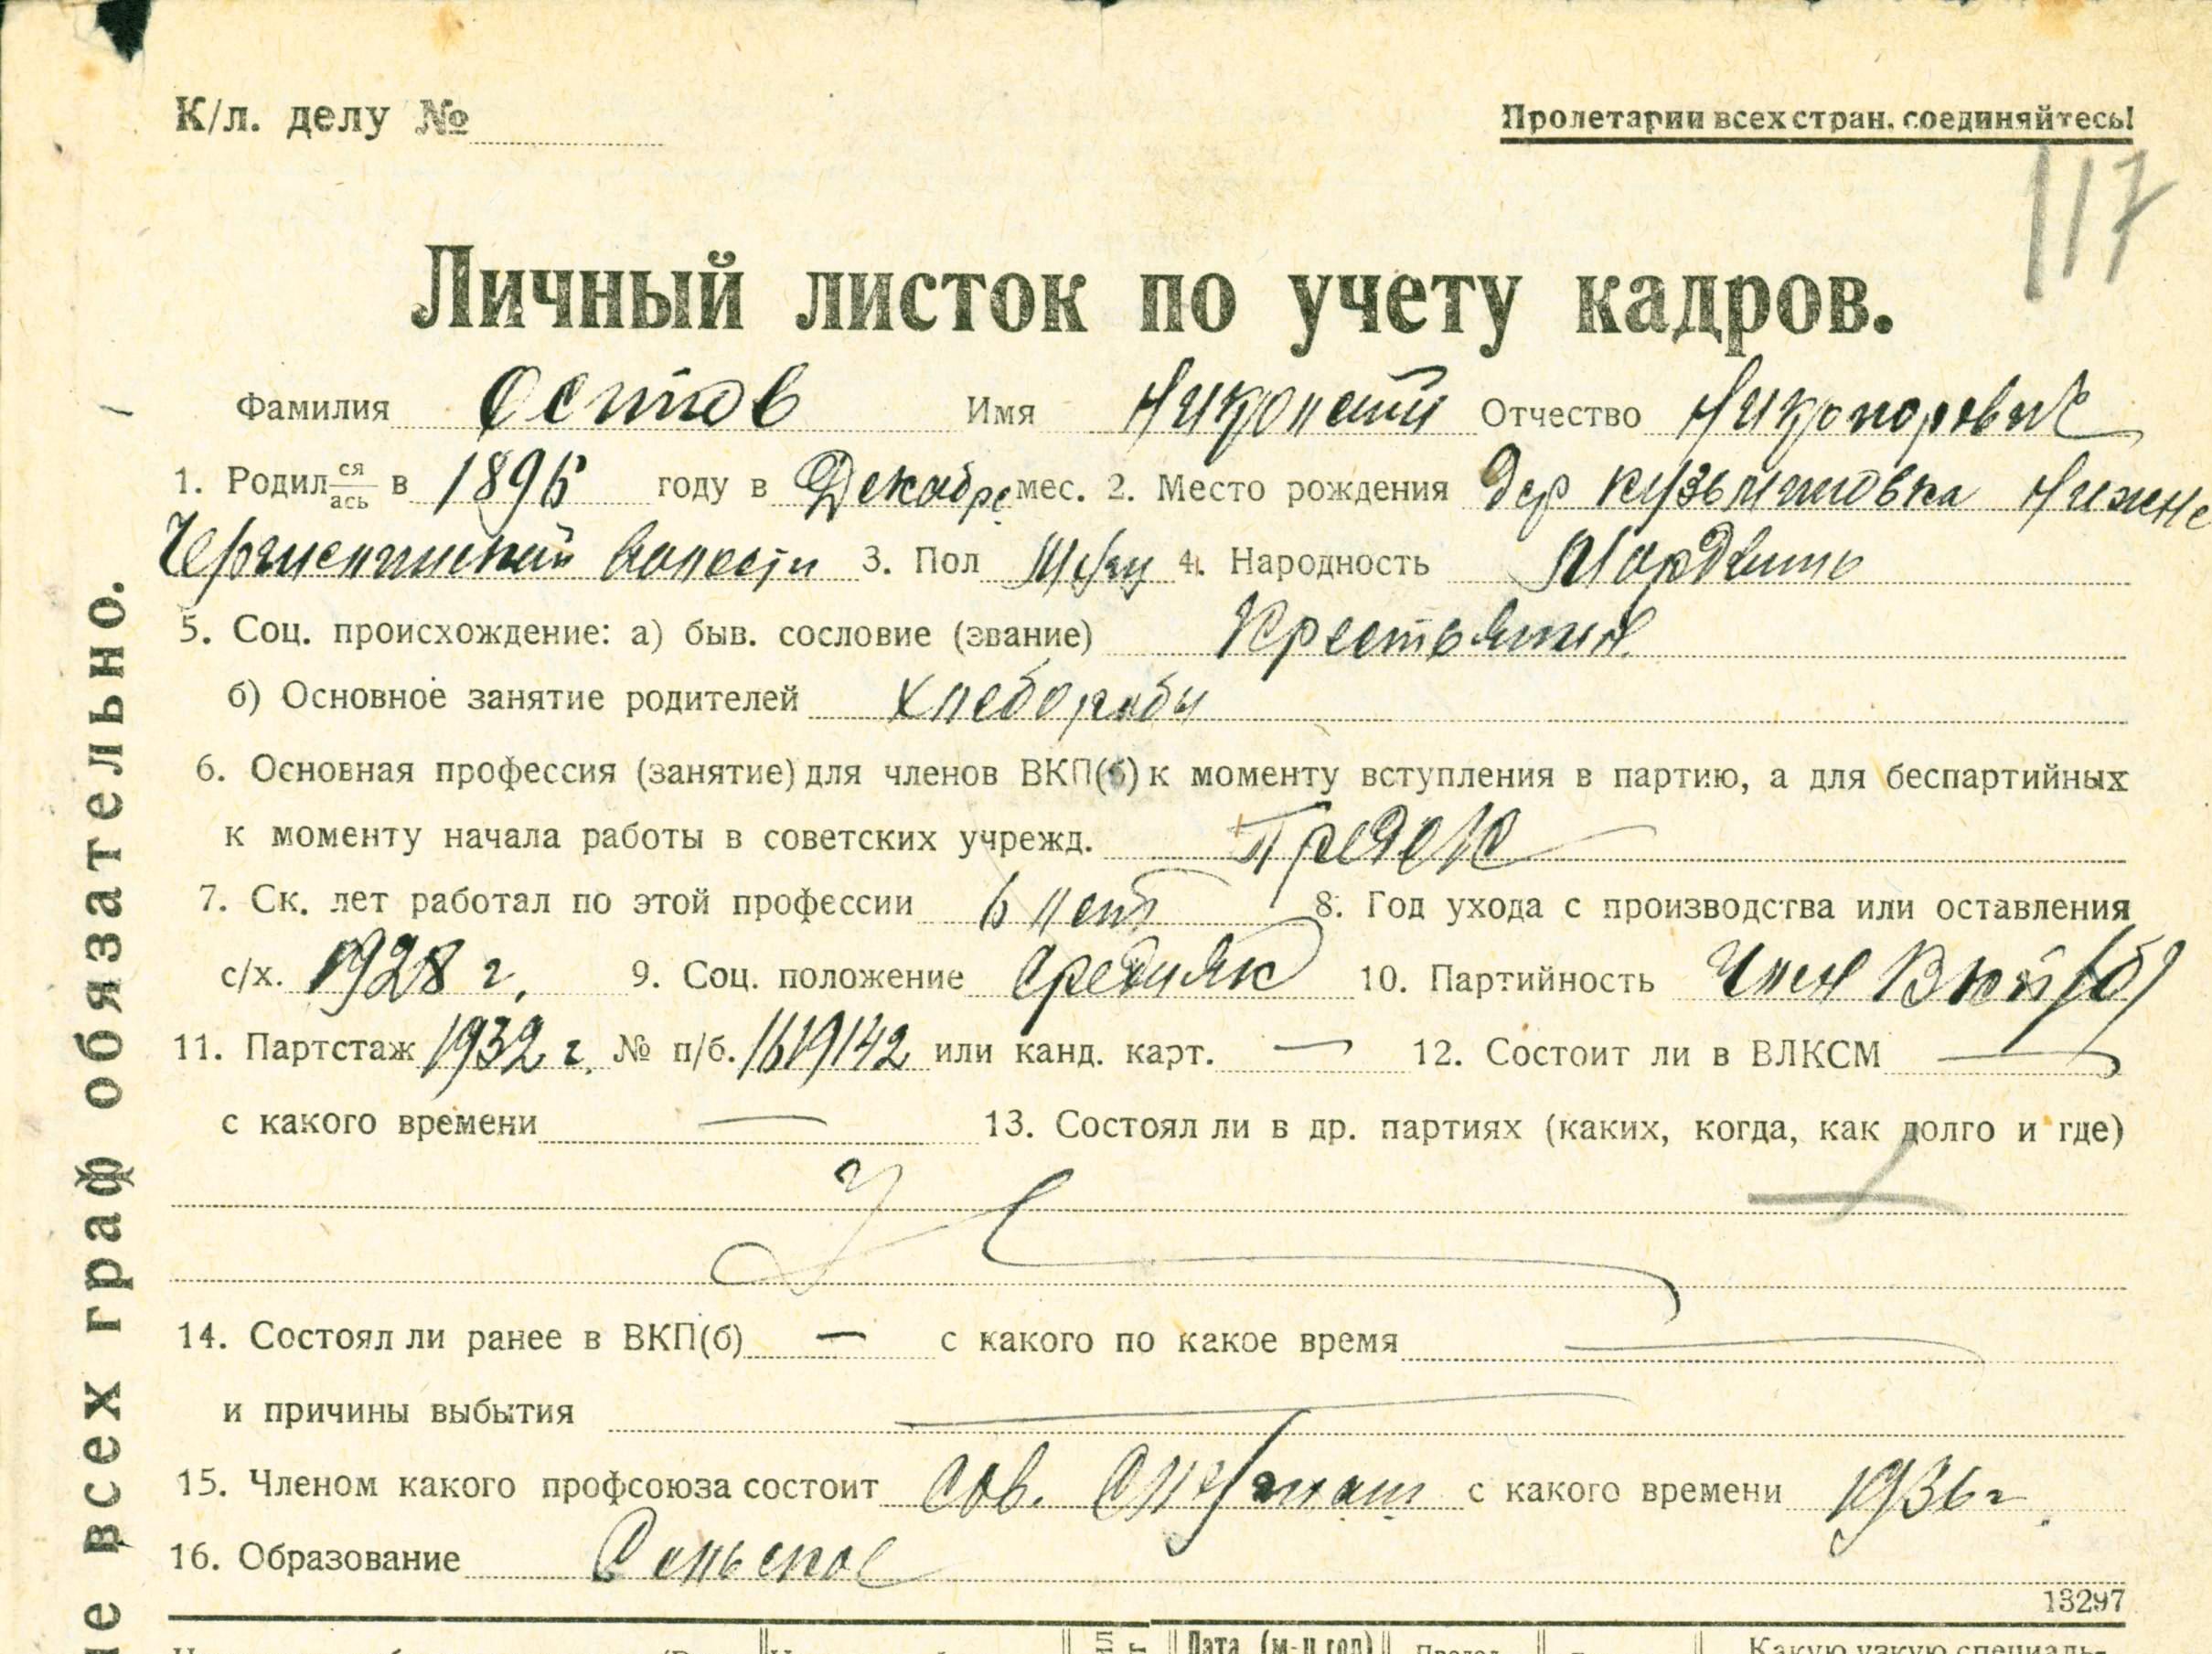 К/л. делу №
Пролетарии всех стран, соединяйтесь!
117
Личный листок по учету кадров.
Фамилия Осипов Имя Отчество Никонорович
1. Родил ся/ась в 1896 году в Декабре мес. 2. Место рождения дер Кузьминовка Нижне
волости 3. Пол Муж 4. Народность Мордвин
5. Соц. происхождение: а) быв. сословие (звание) Крестьянин
б) Основное занятие родителей хлеборобы
6. Основная профессия (занятие) для членов ВКП(б) к моменту вступления в партию, а для беспартийных
к моменту начала работы в советских учрежд.
7. Ск. лет работал по этой профессии 6 лет 8. Год ухода с производства или оставления
с/х. 1928 г. 9. Соц. положение Средняк 10. Партийность Член ВКП(б)
11. Партстаж 1932 г. № п/б. 1619142 или канд. карт. — 12. Состоит ли в ВЛКСМ —
с какого времени — 13. Состоял ли в др. партиях (каких, когда, как долго и где)
14. Состоял ли ранее в ВКП(б) — с какого по какое время —
и причины выбытия —
15. Членом какого профсоюза состоит Сов. с какого времени 1936 г.
16. Образование Сельское
13297
Дата (м-ц год)
Какую узкую специаль-
ие всех граф обязательно.